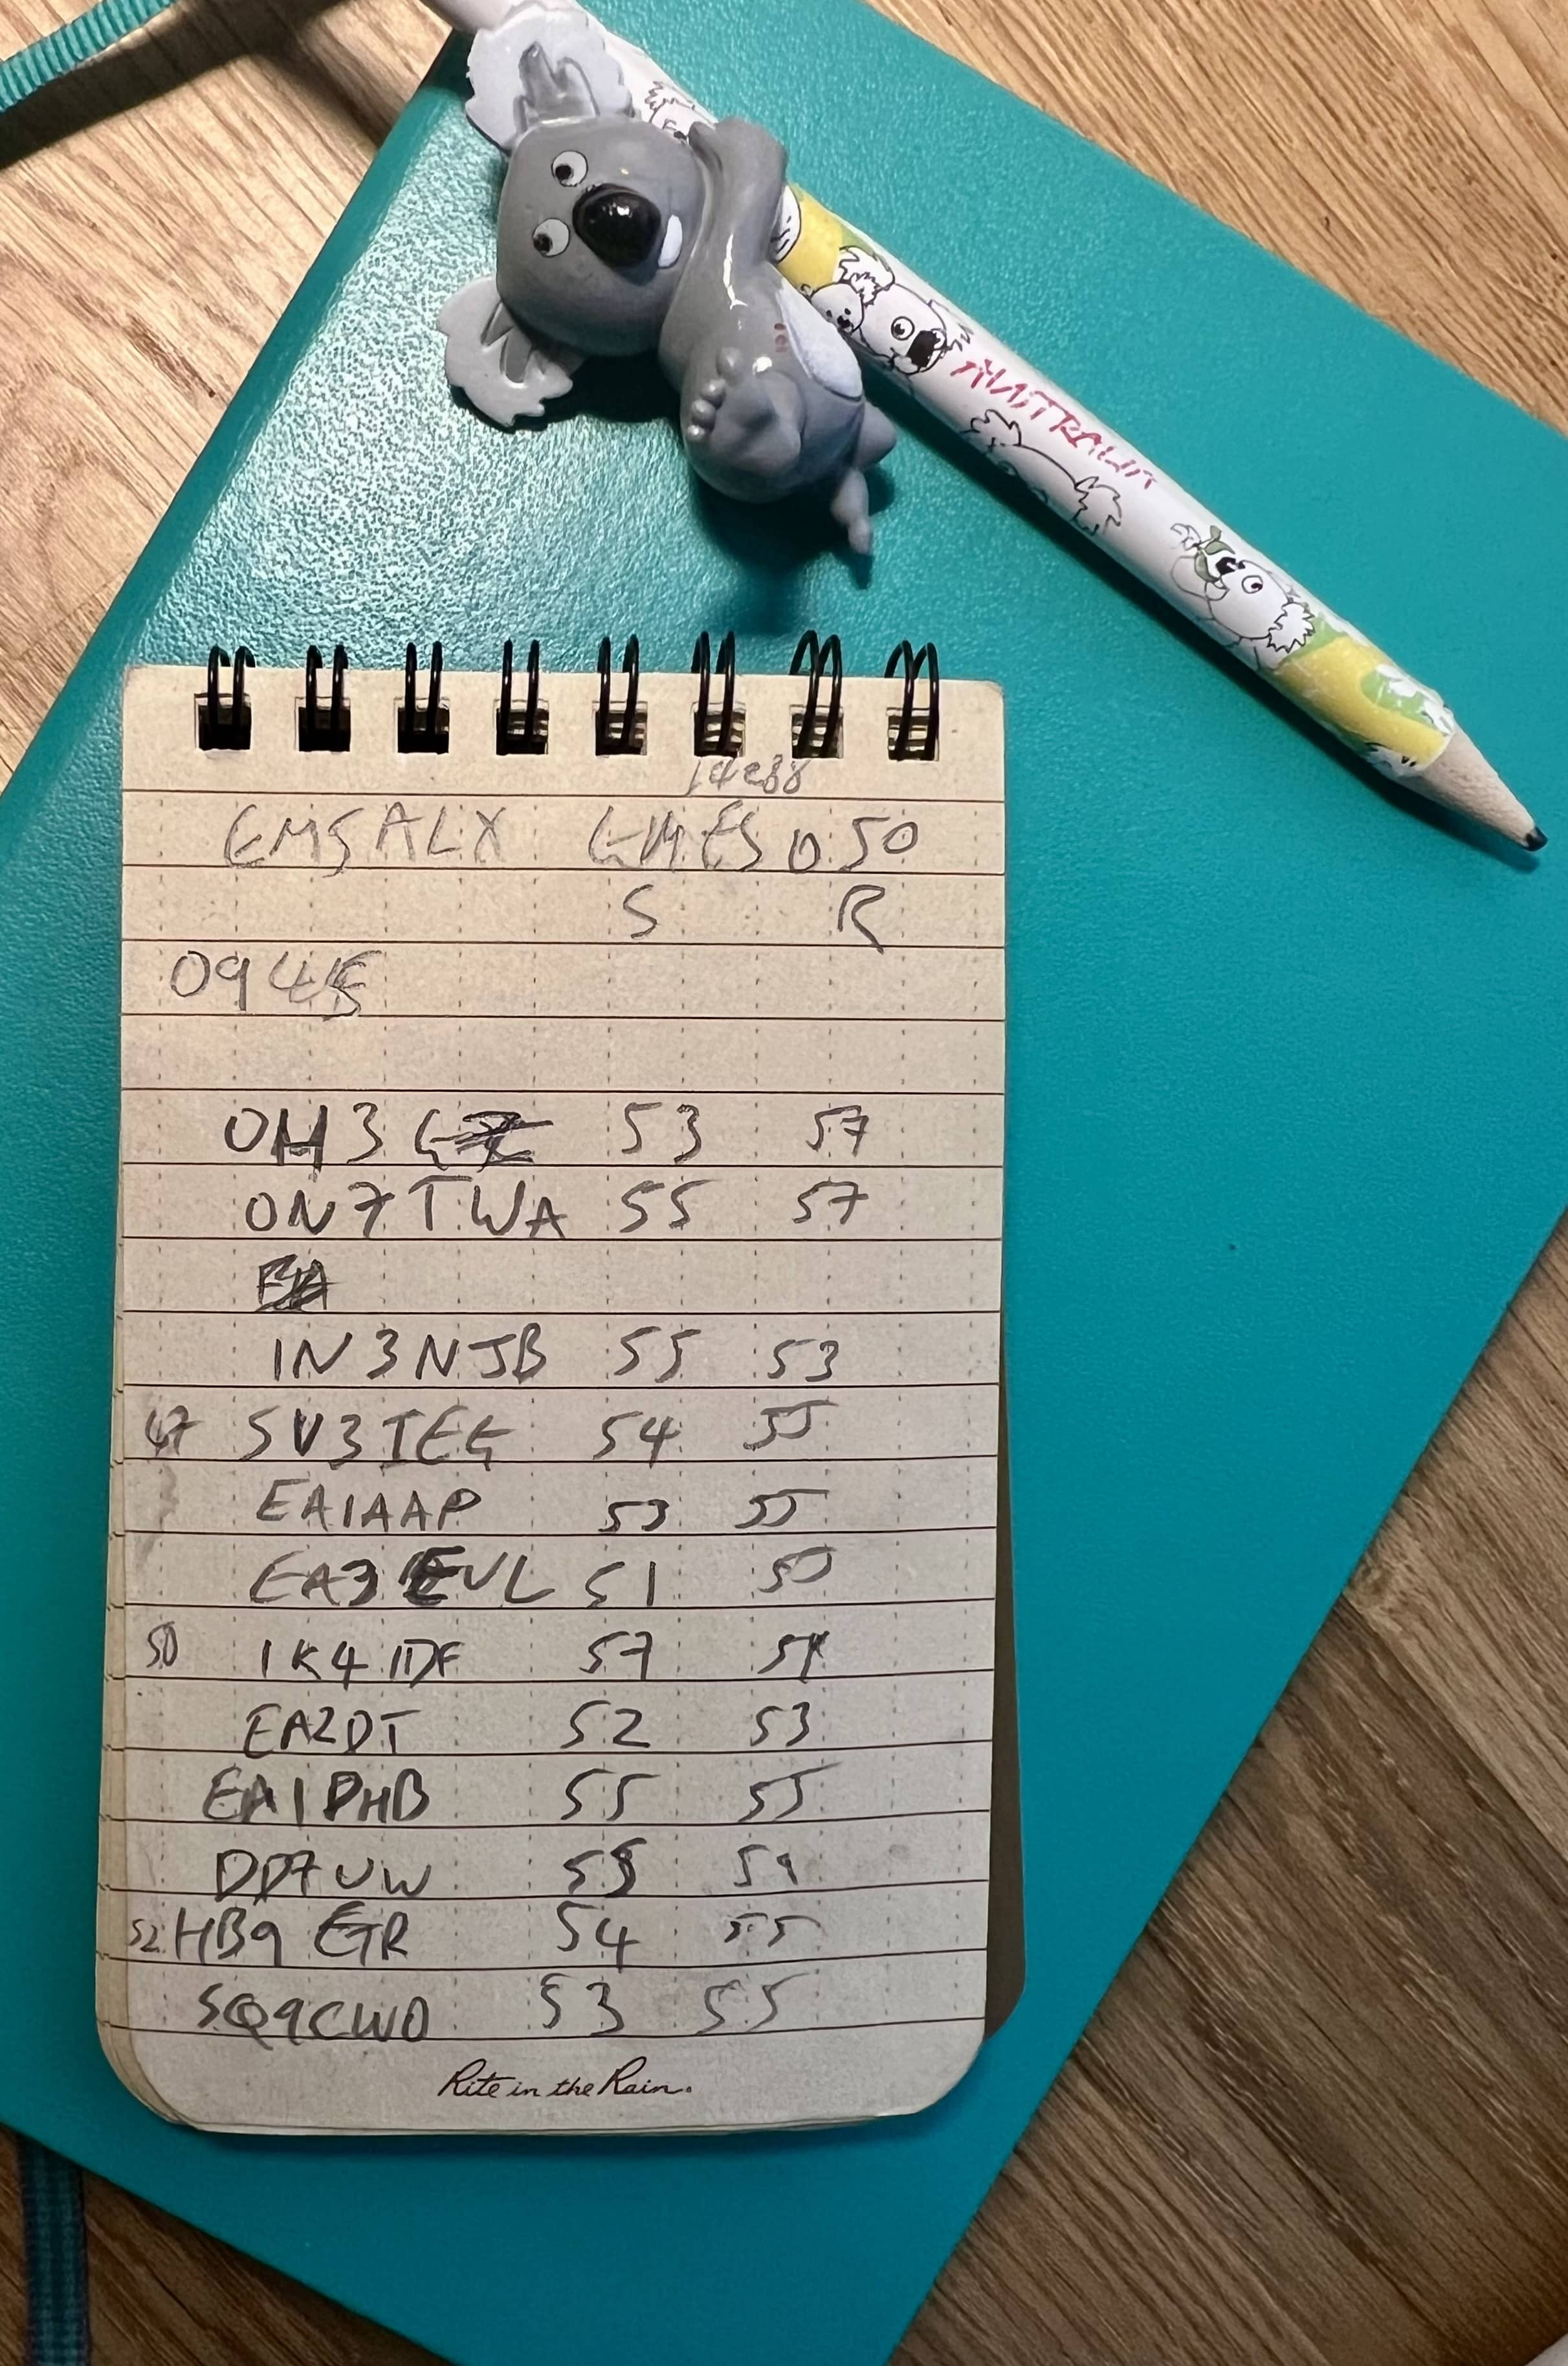 AUSTRALIA
14288
GM5ALX GM/ES 050
S R
0945
OH3 53 57
ON7TWA 55 57
IN3NJB 55 53
47 SV3IEG 54 55
EA1AAP 53 55
EA3EVL 51 55
50 IK4IDF 57
EA2DT 52 53
EA1PHB 55 55
DD7UW 55 59
52 HB9EGR 54 55
SQ9CWO 53 55
Rite in the Rain.